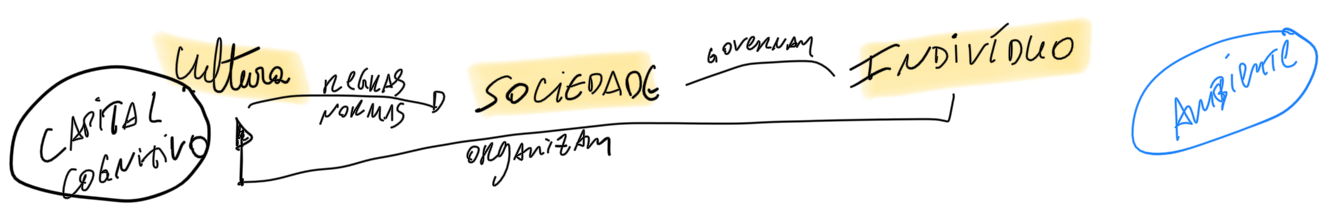 Cultura
CAPITAL
COGNITIVO
REGRAS
NORMAS
SOCIEDADE
GOVERNAM
INDIVÍDUO
ORGANIZAM
AMBIENTE